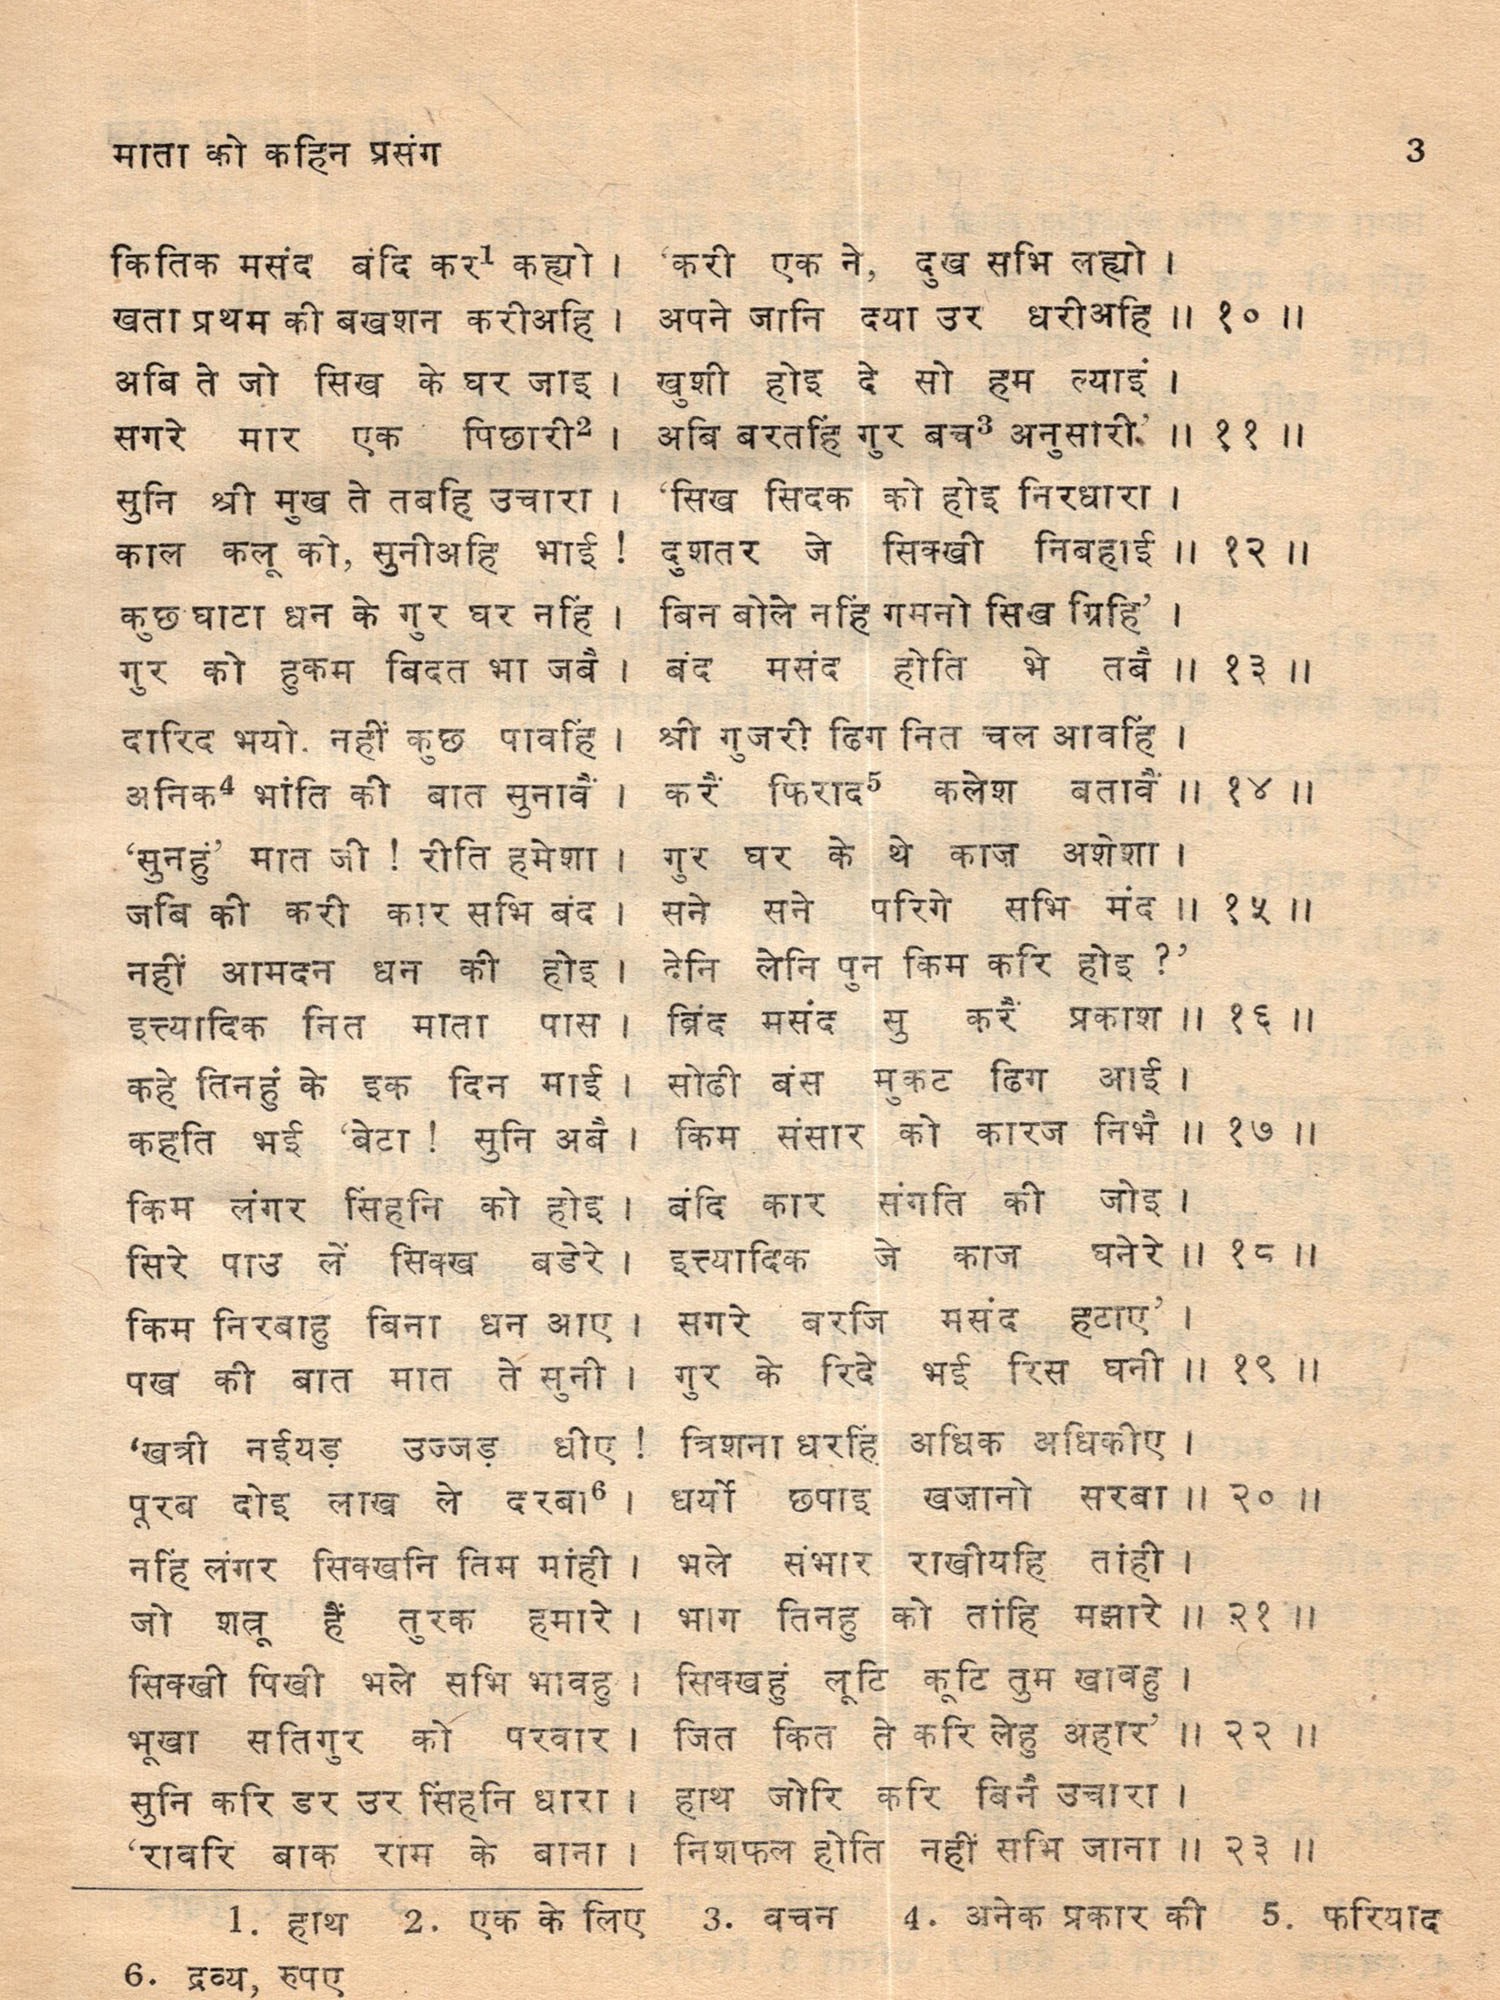 माता को कहिन प्रसंग 3
कितिक मसंद बंदि कर¹ कह्यो । ‘करी एक ने, दुख सभि लह्यो ।
खता प्रथम की बखशन करीअहि । अपने जानि दया उर धरीअहि ॥ १० ॥
अबि ते जो सिख के घर जाइ । खुशी होइ दे सो हम ल्याइं ।
सगरे मार एक पिछारी² । अबि बरतहिं गुर बच³ अनुसारी.’ ॥ ११ ॥
सुनि श्री मुख ते तबहि उचारा । ‘सिख सिदक को होइ निरधारा ।
काल कलू को, सुनीअहि भाई ! दुशतर जे सिक्खी निबहाई ॥ १२ ॥
कुछ घाटा धन के गुर घर नहिं । बिन बोले नहिं गमनो सिख ग्रिहि’ ।
गुर को हुकम बिदत भा जबै । बंद मसंद होति भे तबै ॥ १३ ॥
दारिद भयो. नहीं कुछ पावहिं । श्री गुजरी ढिग नित चल आवहिं ।
अनिक⁴ भांति की बात सुनावैं । करैं फिराद⁵ कलेश बतावैं ॥ १४ ॥
‘सुनहुं’ मात जी ! रीति हमेशा । गुर घर के थे काज़ अशेशा ।
जबि की करी कार सभि बंद । सने सने परिगे सभि मंद ॥ १५ ॥
नहीं आमदन धन की होइ । देनि लेनि पुन किम करि होइ ?’
इत्त्यादिक नित माता पास । ब्रिंद मसंद सु करैं प्रकाश ॥ १६ ॥
कहे तिनहुं के इक दिन माई । सोढी बंस मुकट ढिग आई ।
कहति भई ‘बेटा ! सुनि अबै । किम संसार को कारज निभै ॥ १७ ॥
किम लंगर सिंहनि को होइ । बंदि कार संगति की जोइ ।
सिरे पाउ लें सिक्ख बडेरे । इत्त्यादिक जे काज घनेरे ॥ १८ ॥
किम निरबाहु बिना धन आए । सगरे बरजि मसंद हटाए’ ।
पख की बात मात ते सुनी । गुर के रिदे भई रिस घनी ॥ १९ ॥
‘खत्री नईयड़ उज्जड़ धीए ! त्रिशना धरहिं अधिक अधिकीए ।
पूरब दोइ लाख ले दरबा⁶ । धर्यो छपाइ खज़ानो सरबा ॥ २० ॥
नहिं लंगर सिक्खनि तिम मांही । भले संभार राखीयहि तांही ।
जो शत्रू हैं तुरक हमारे । भाग तिनहु को तांहि मझारे ॥ २१ ॥
सिक्खी पिखी भले सभि भावहु । सिक्खहुं लूटि कूटि तुम खावहु ।
भूखा सतिगुर को परवार । जित कित ते करि लेहु अहार’ ॥ २२ ॥
सुनि करि डर उर सिंहनि धारा । हाथ जोरि करि बिनै उचारा ।
‘रावरि बाक राम के बाना । निशफल होति नहीं सभि जाना ॥ २३ ॥
1. हाथ 2. एक के लिए 3. वचन 4. अनेक प्रकार की 5. फरियाद
6. द्रव्य, रुपए